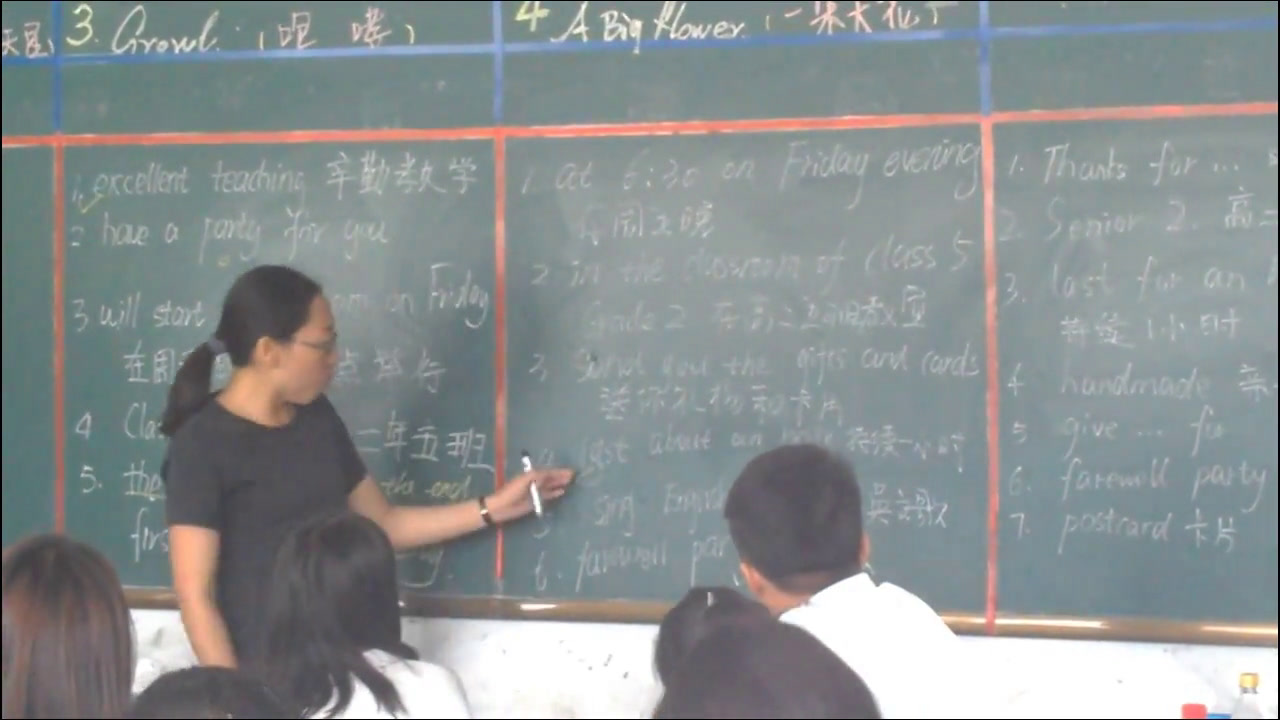 3. Growl. (咆 喽)
4 A Big flower (一朵大花)
1. excellent teaching 辛勤教学
2 have a party for you
3 will start on Friday
在周 点举行
4 二年五班
5. the the end
1 at 6:30 on Friday evening
在周五晚
2 in the classroom of Class 5
Grade 2 在高二五班教室
3. Send you the gifts and cards
送你礼物和卡片
last about an 持续一小时
sing
6. farewell
1. Thanks for ...
2. Senior 2. 高二
3. last for an
持续1小时
4 handmade
5 give ... for
6. farewell party
7. postcard 卡片